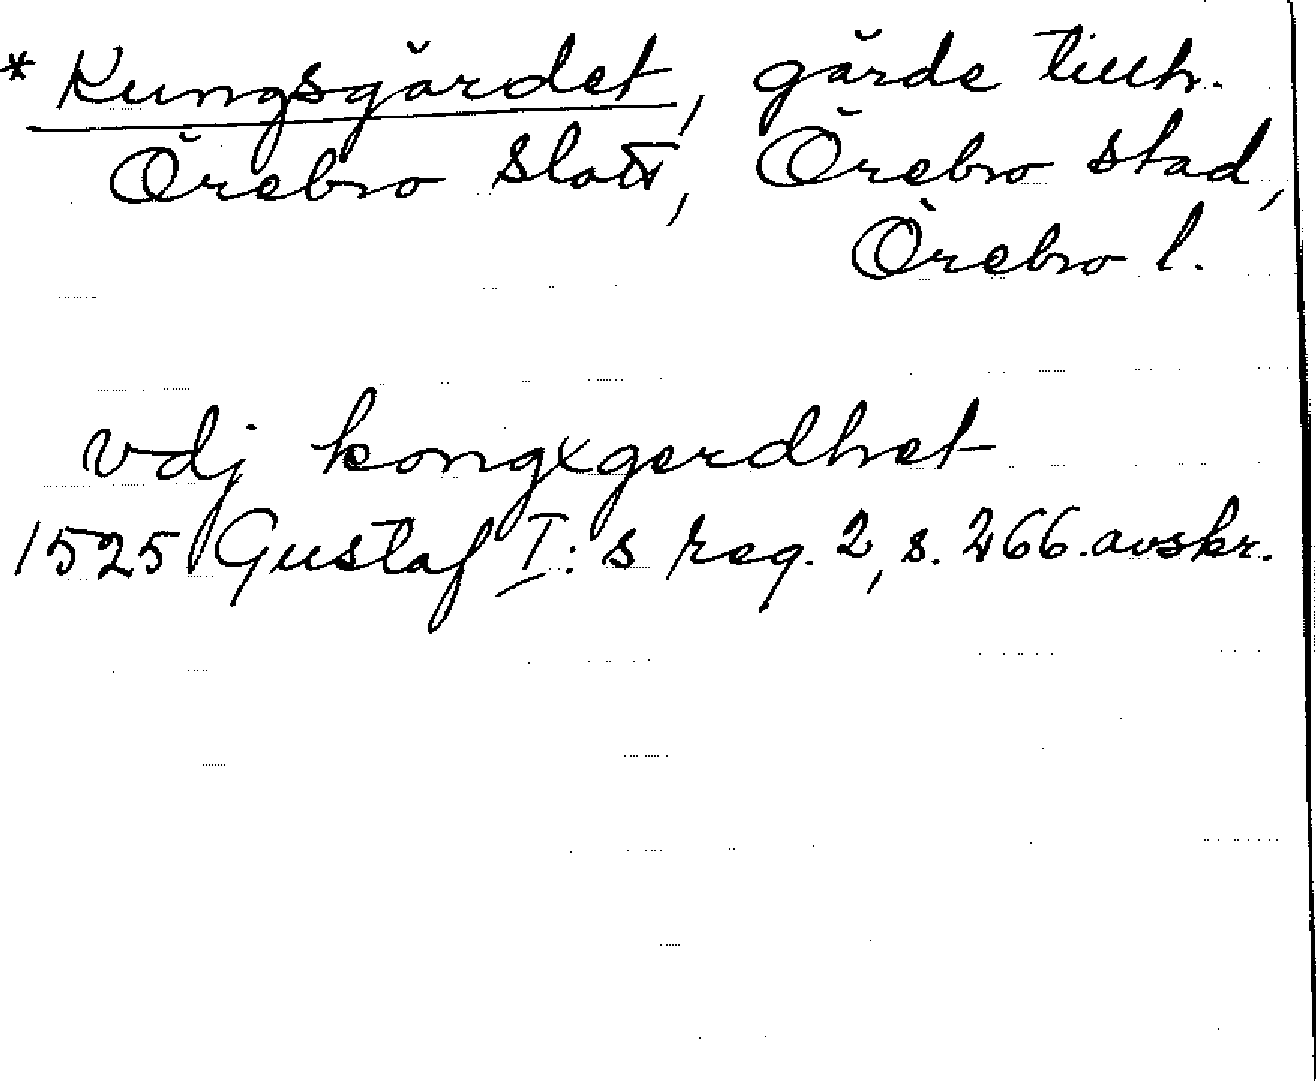 * Kungsgärdet, gärde tillh.
Örebro slott, Örebro stad,
Örebro l.
vdj kongxgerdhet
1525 Gustaf I:s reg. 2, s. 266. avskr.